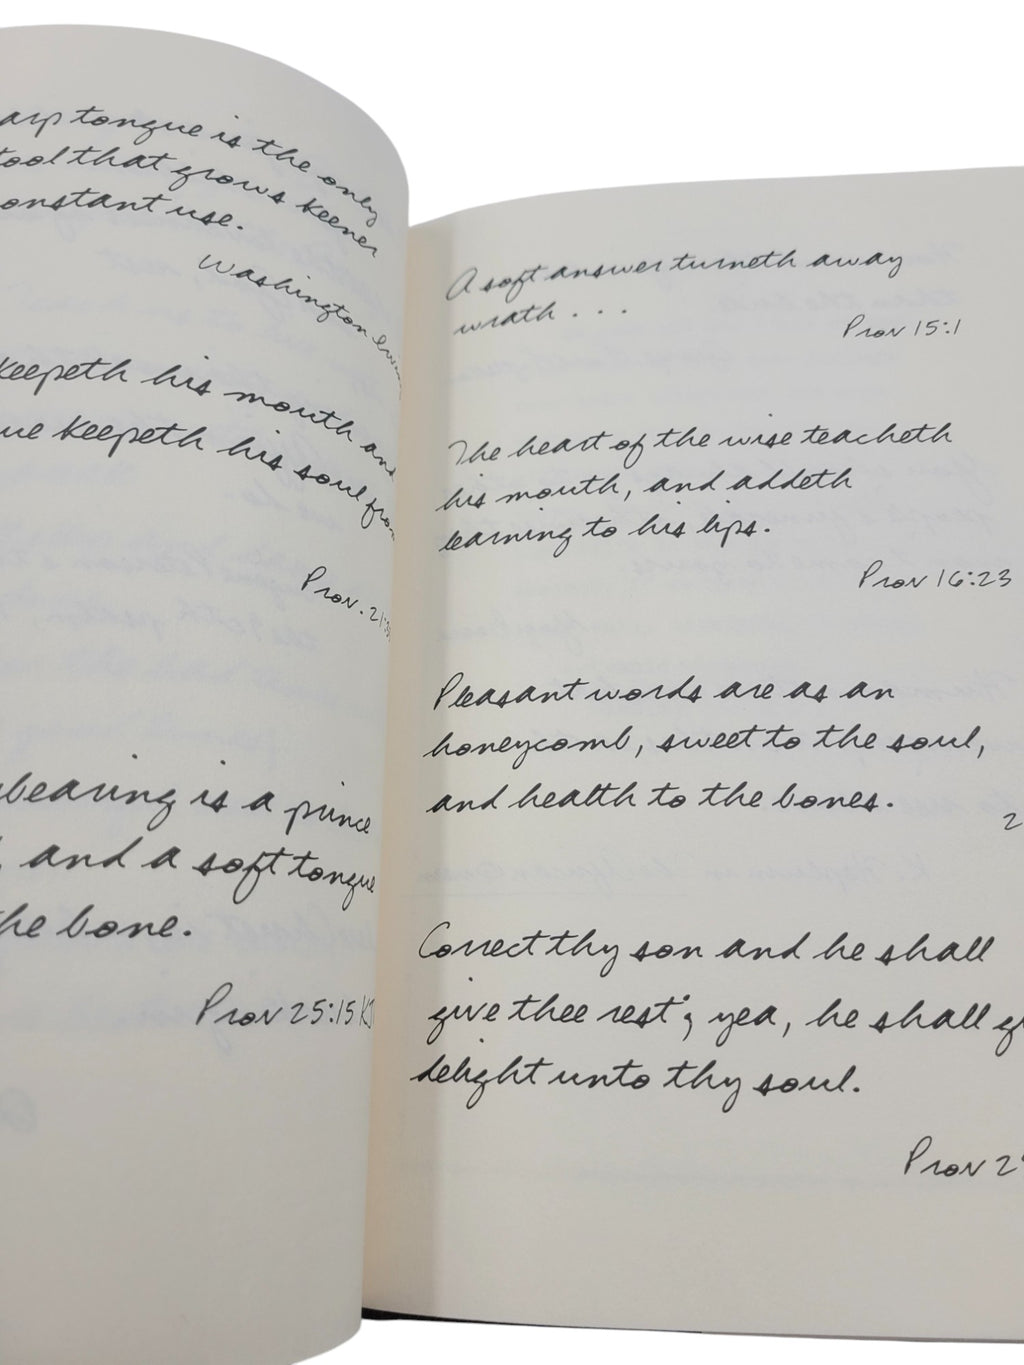 arp tongue is the only
tool that grows keener
onstant use.
Washington
keepeth his mouth and
ue keepeth his soul from
Prov. 21:
bearing is a prince
, and a soft tongue
the bone.
Prov 25:15 KJ
A soft answer turneth away
wrath . . .
Prov 15:1
The heart of the wise teacheth
his mouth, and addeth
learning to his lips.
Prov 16:23
Pleasant words are as an
honeycomb, sweet to the soul,
and health to the bones.
2
Correct thy son and he shall
give thee rest; yea, he shall gi
delight unto thy soul.
Prov 2